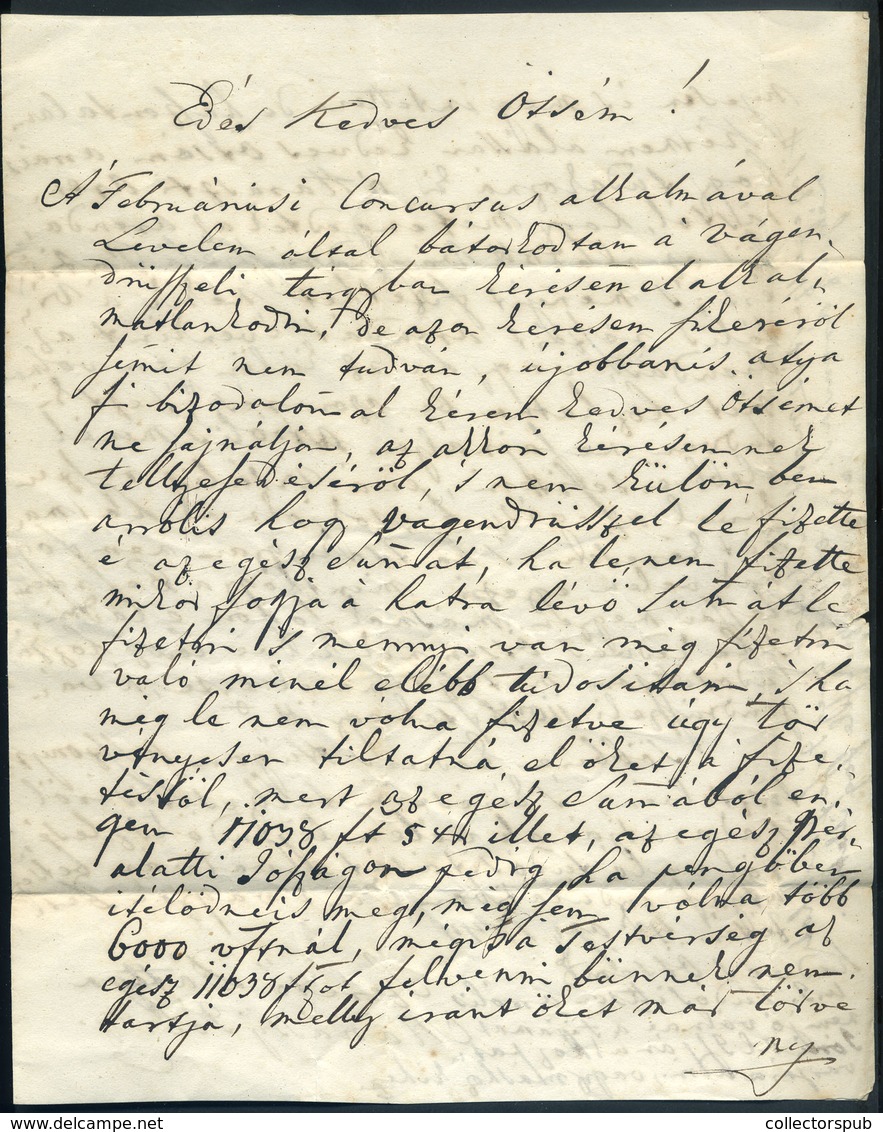 Édes Kedves Ötsém!
A' Februáriusi Concursus alkalmával
Levelem által bátorkodtam a' vágen,
drüszeli tárgyban kérésemel alkal,
matlankodni, de azon kérésem sikeréről
semit nem tudván, újobbanis atya
fi bizodalomal kérem kedves Ötsémet
ne sajnáljon, az akkori kérésemnek
tellyesedéséről, 's nem külömben
arrólis hogy vágendrüszel le fizette
é az egész Sumát, ha le nem fizette
mikor fogja a' hátra lévö Sumát le
fizetni 's mennyi van még fizetni
való minél elébb tudositani, 's ha
még le nem vólna fizetve úgy tör
vényesen tiltatná el öket a' fize,
téstöl, mert az egész Sumából en,
gem 11038 ft 54 illet, az egész Pér,
alatti Jószágom pedig ha pengöben
itélödneis meg, még sem vólna több
6000 vftnál, mégis a' Testvérség az
egész 11038 ftot felvenni bünnek nem
tartja, melly iránt öket már törvé
ny
collectorspub